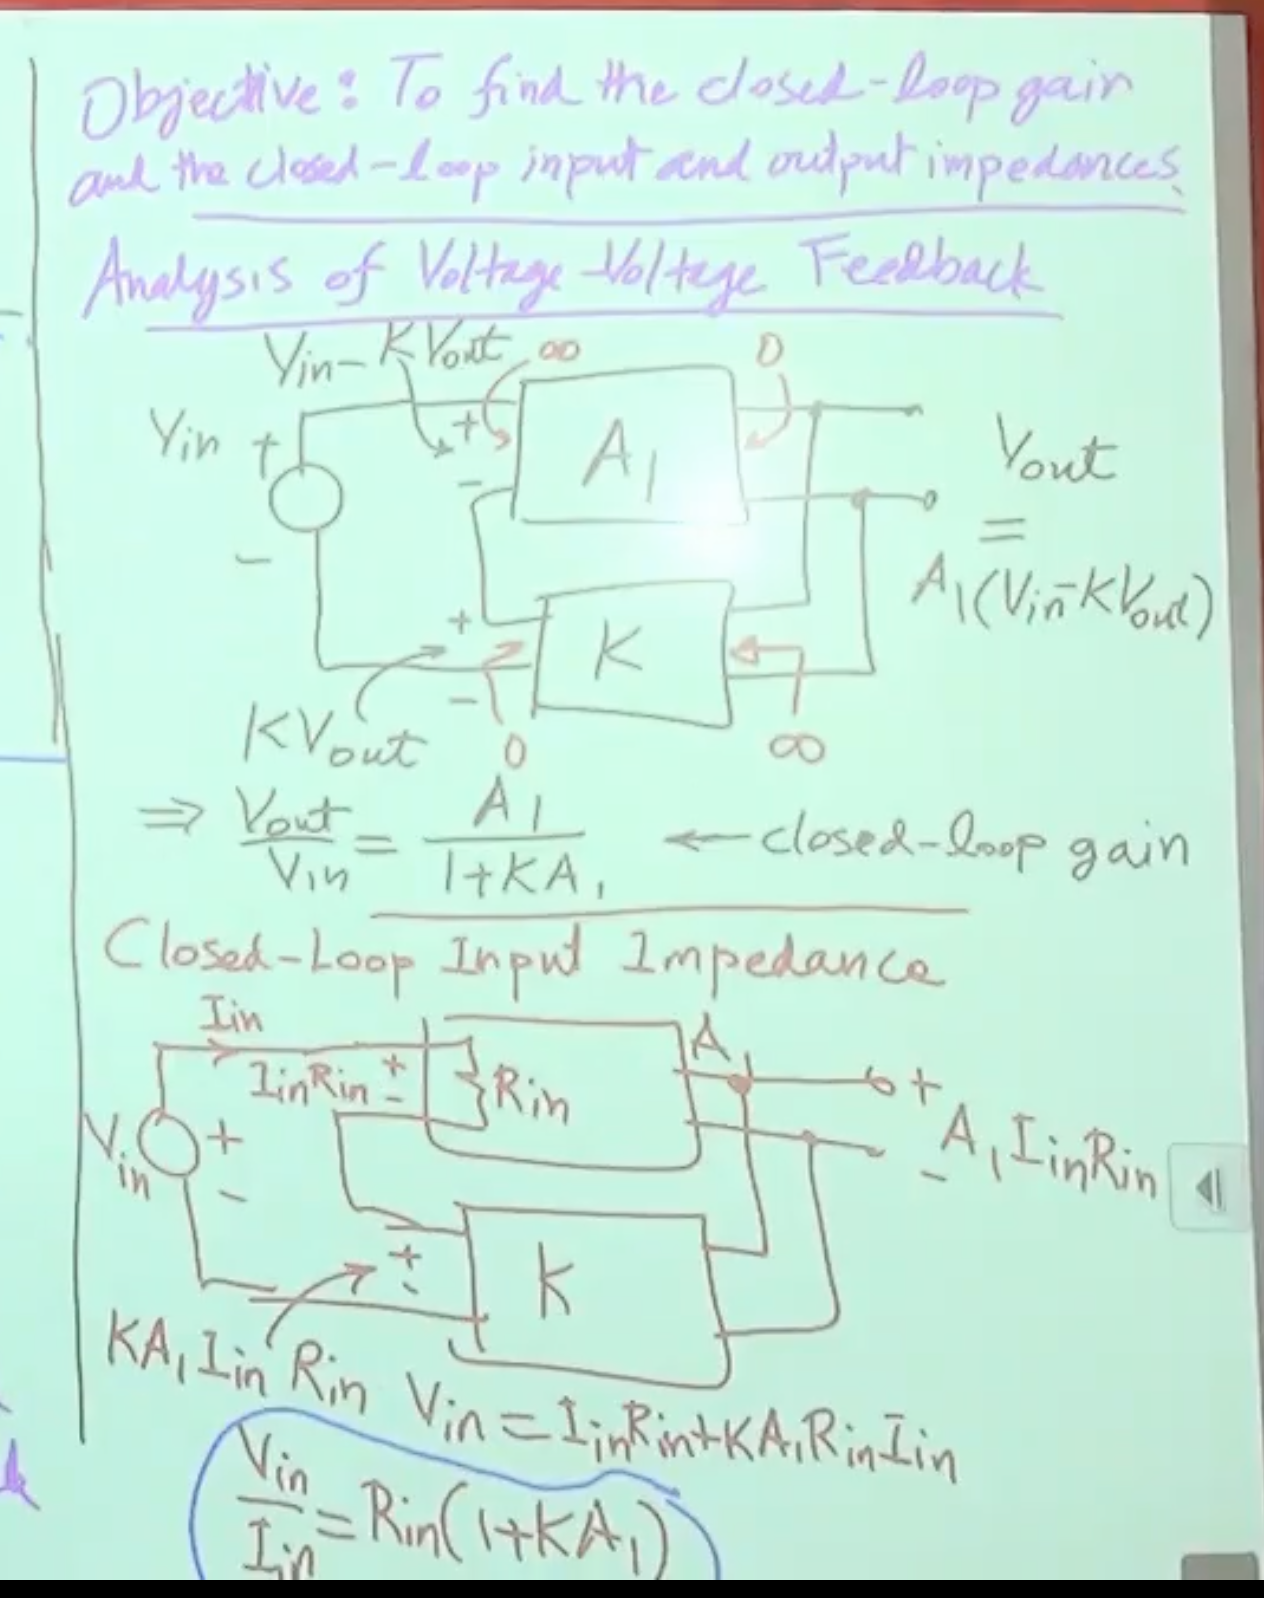 Objective: To find the closed-loop gain
and the closed-loop input and output impedances.
Analysis of Voltage-Voltage Feedback
Vin-KVout
∞
0
Vin
+
-
+
-
A1
Vout
=
A1(Vin-KVout)
+
-
K
KVout
0
∞
⇒ Vout/Vin = A1/1+KA1 ← closed-loop gain
Closed-Loop Input Impedance
Iin
IinRin
+
-
Rin
A1
+
-
A1IinRin
Vin
+
-
+
-
K
KA1IinRin
Vin=IinRin+KA1RinIin
Vin/Iin=Rin(1+KA1)